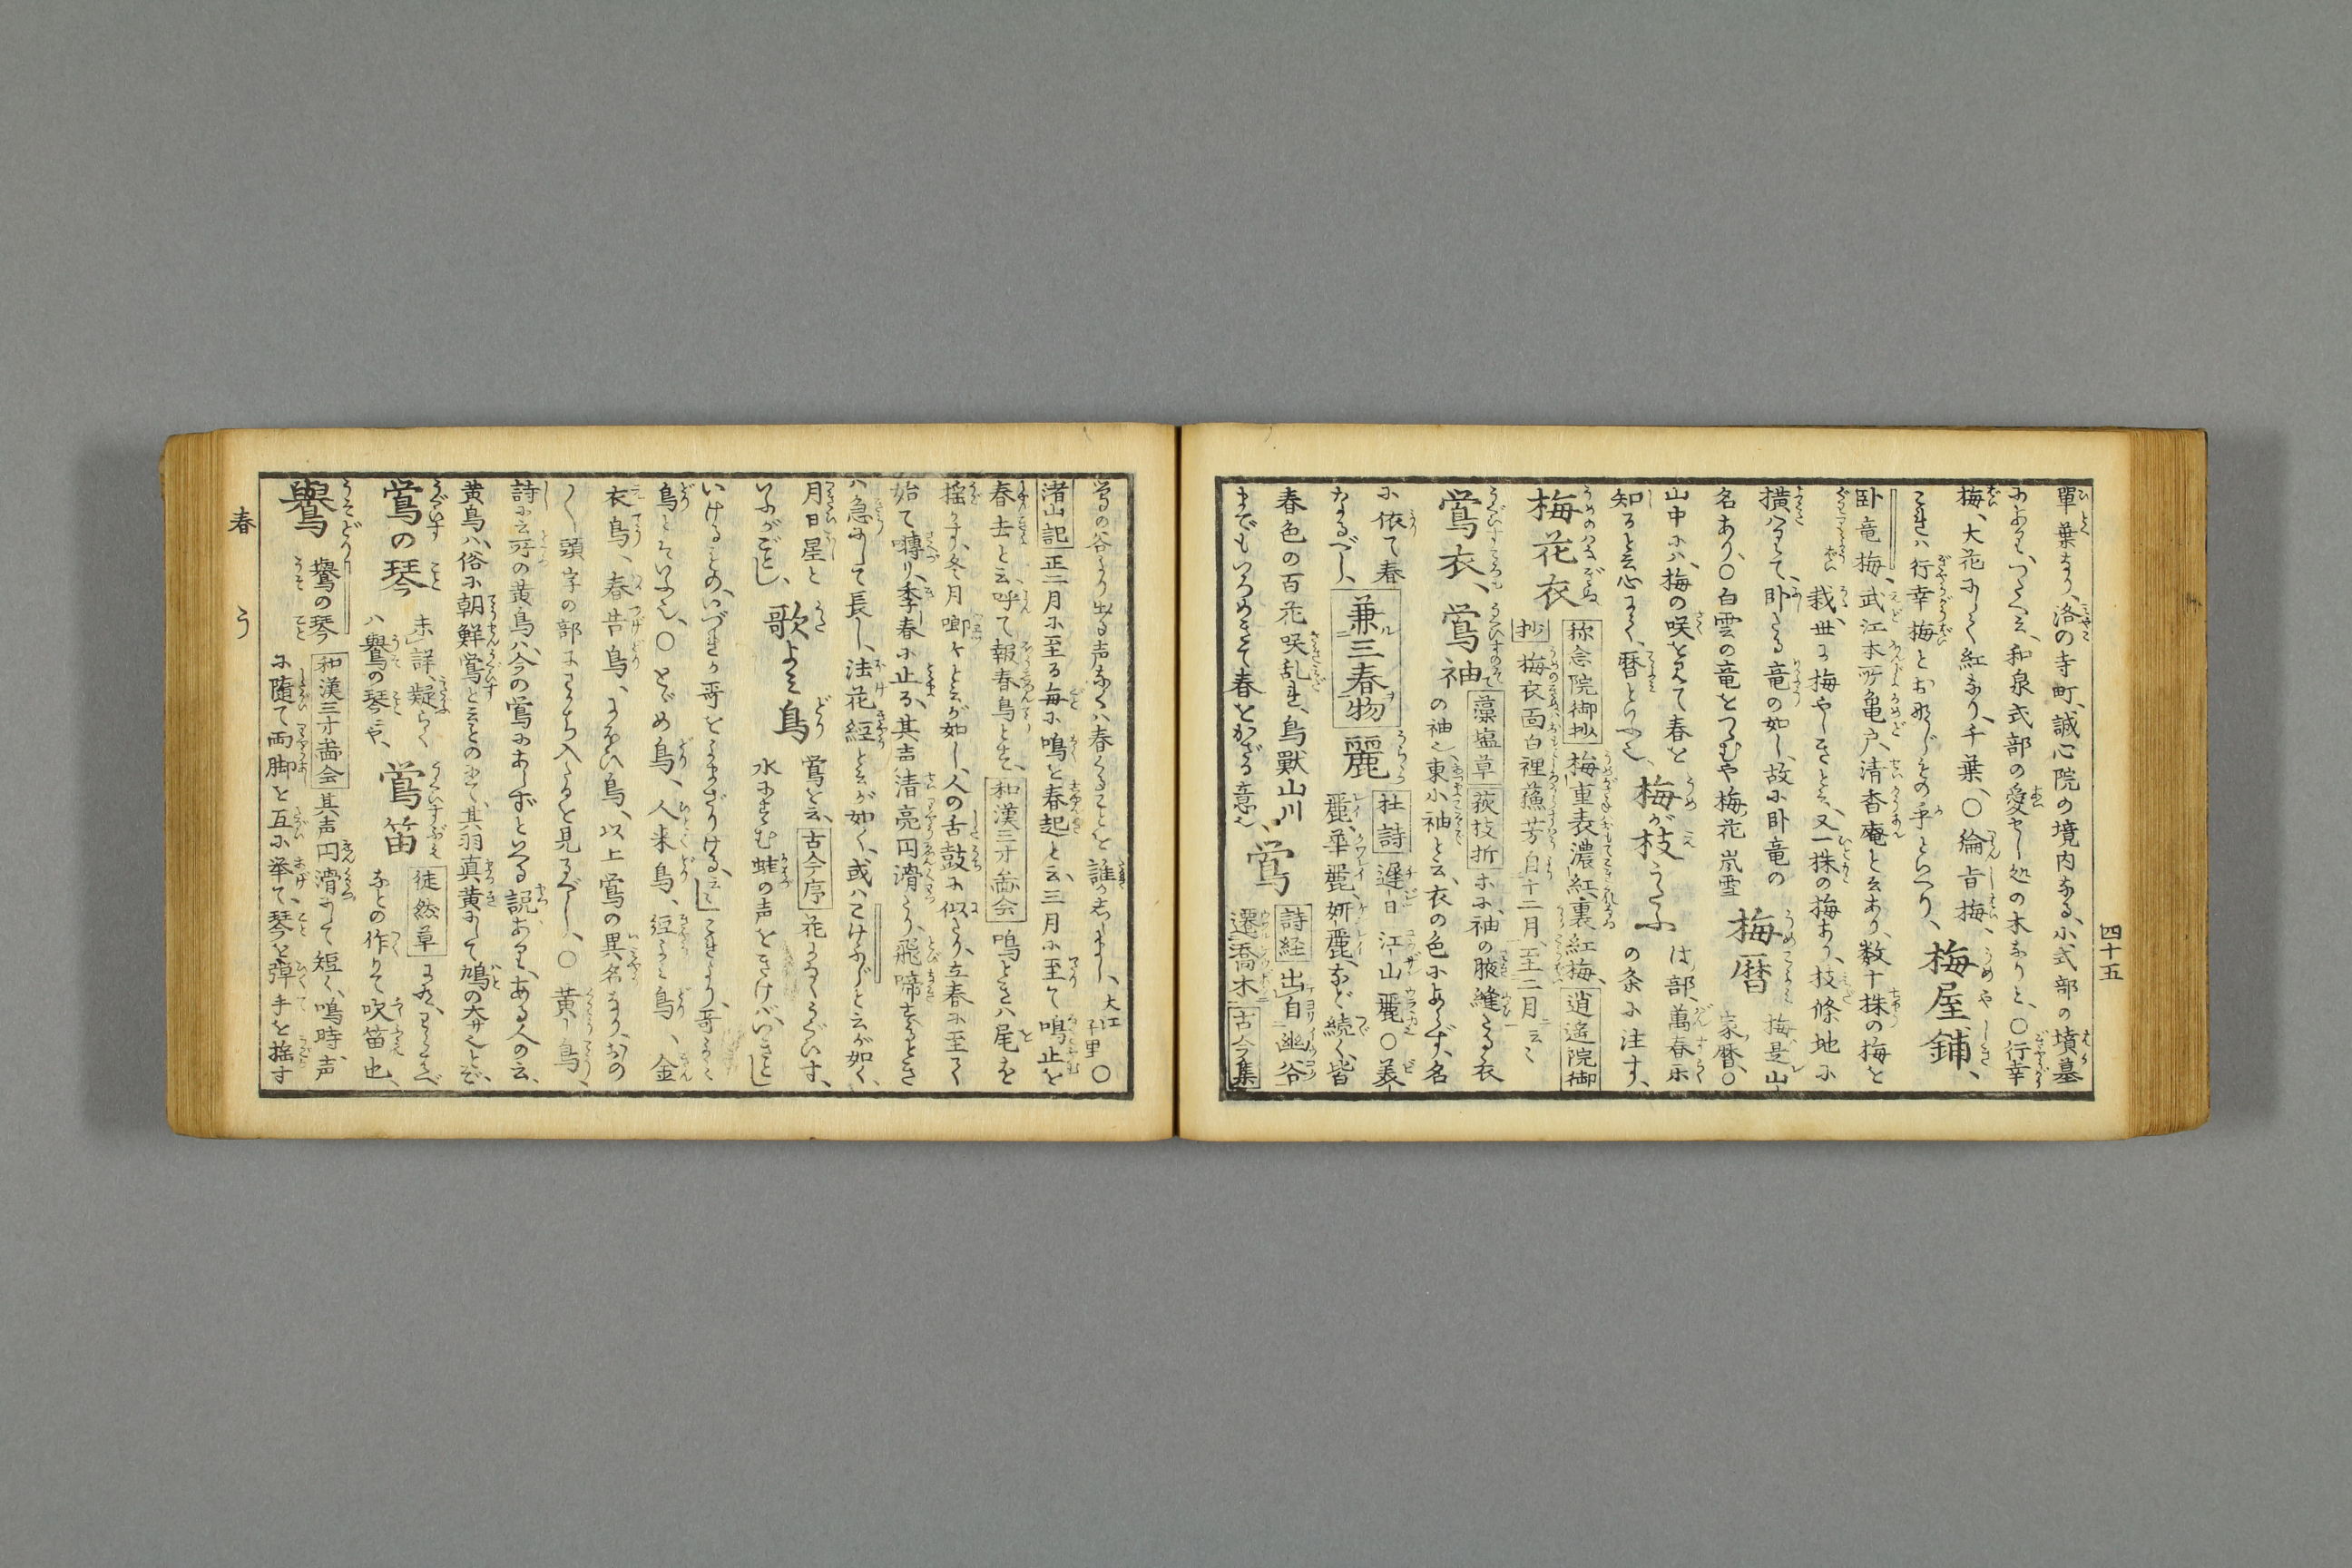 四十五
單葉なり、洛の寺町、誠心院の境内なる、小式部の墳墓
にあり、つたへ云、和泉式部の愛せし処の木なりと、〇行幸
梅、大花にして紅なり、千葉、〇綸旨梅、うめやしき
これハ行幸梅とおなじその手といへり、梅屋鋪、
臥竜梅、武江本所亀戸、清香庵と云あり、数十株の梅を
栽、世に梅やしきと云、又一株の梅あり、枝條地に
横ハりて、臥たる竜の如し、故に臥竜の
名あり、〇白雲の竜をつゝむや梅花 嵐雪 梅暦 梅是山家暦、〇
山中にハ、梅の咲を見て春を
知ると云心にて、暦といふ也、梅が枝うたふ は部、萬春樂の条に注す、
梅花衣 称念院御抄 梅重表濃紅、裏紅梅、逍遙院御
抄 梅衣面白裡蘓芳自十二月、至二月ニ云々
鶯衣、鶯袖 藻塩草 荻枝折 ホニ、袖の腋縫たる衣
の袖也、東小袖と云、衣の色にあらず、名
に依て春
なるべし、兼三春物 麗 杜詩 遲日江山麗 〇美
麗、華麗、妍麗、など続く、皆
春色の百花咲乱れ、鳥獸山川
までもいろめきて春をかざる意也、鶯 詩経 出自幽谷
遷喬木 古今集
鶯の谷より出る声なくハ春くることを誰かしらまし、大江千里〇
渚山記 正二月に至る毎に鳴を春起と云三月に至て鳴止を
春去と云、呼て報春鳥と云、和漢三才啚会 鳴ときハ尾を
揺かす、冬月啣々と云が如し、人の舌鼓に似たり、立春に至て
始て囀り、季春に止る、其声清亮円滑なり、飛啼するとき
ハ急にして長し、法花経と云が如く、或ハつけふじと云が如く、
月日星と
いふがごとし、歌よミ鳥 鶯を云、古今序 花になくうぐいす、
水にすむ蛙の声をきけバ、いきとし
いけるもの、いづれか哥をよまざりける、云〻 これより、哥よミ
鳥とハいふ也、〇とゞめ鳥、人来鳥、経よミ鳥、金
衣鳥、春告鳥、にほひ鳥、以上鶯の異名なり、おの
〳〵頭字の部にわかち入たるを見るべし、〇黄鳥、
詩に云所の黄鳥ハ、今の鶯にあらずといへる説あり、ある人の云、
黄鳥ハ、俗に朝鮮鶯と云ものにて、其羽真黄にして鳩の大サ也とぞ、
鶯の琴 未詳、疑らく
ハ鷽の琴や、鶯笛 徒然草 にみへわらハべ
などの作りて吹笛也、
鷽 鷽の琴 和漢三才啚会 其声円滑にして短く、鳴時、声
に随て両脚を互に挙て、琴を弾手を揺す
春 う